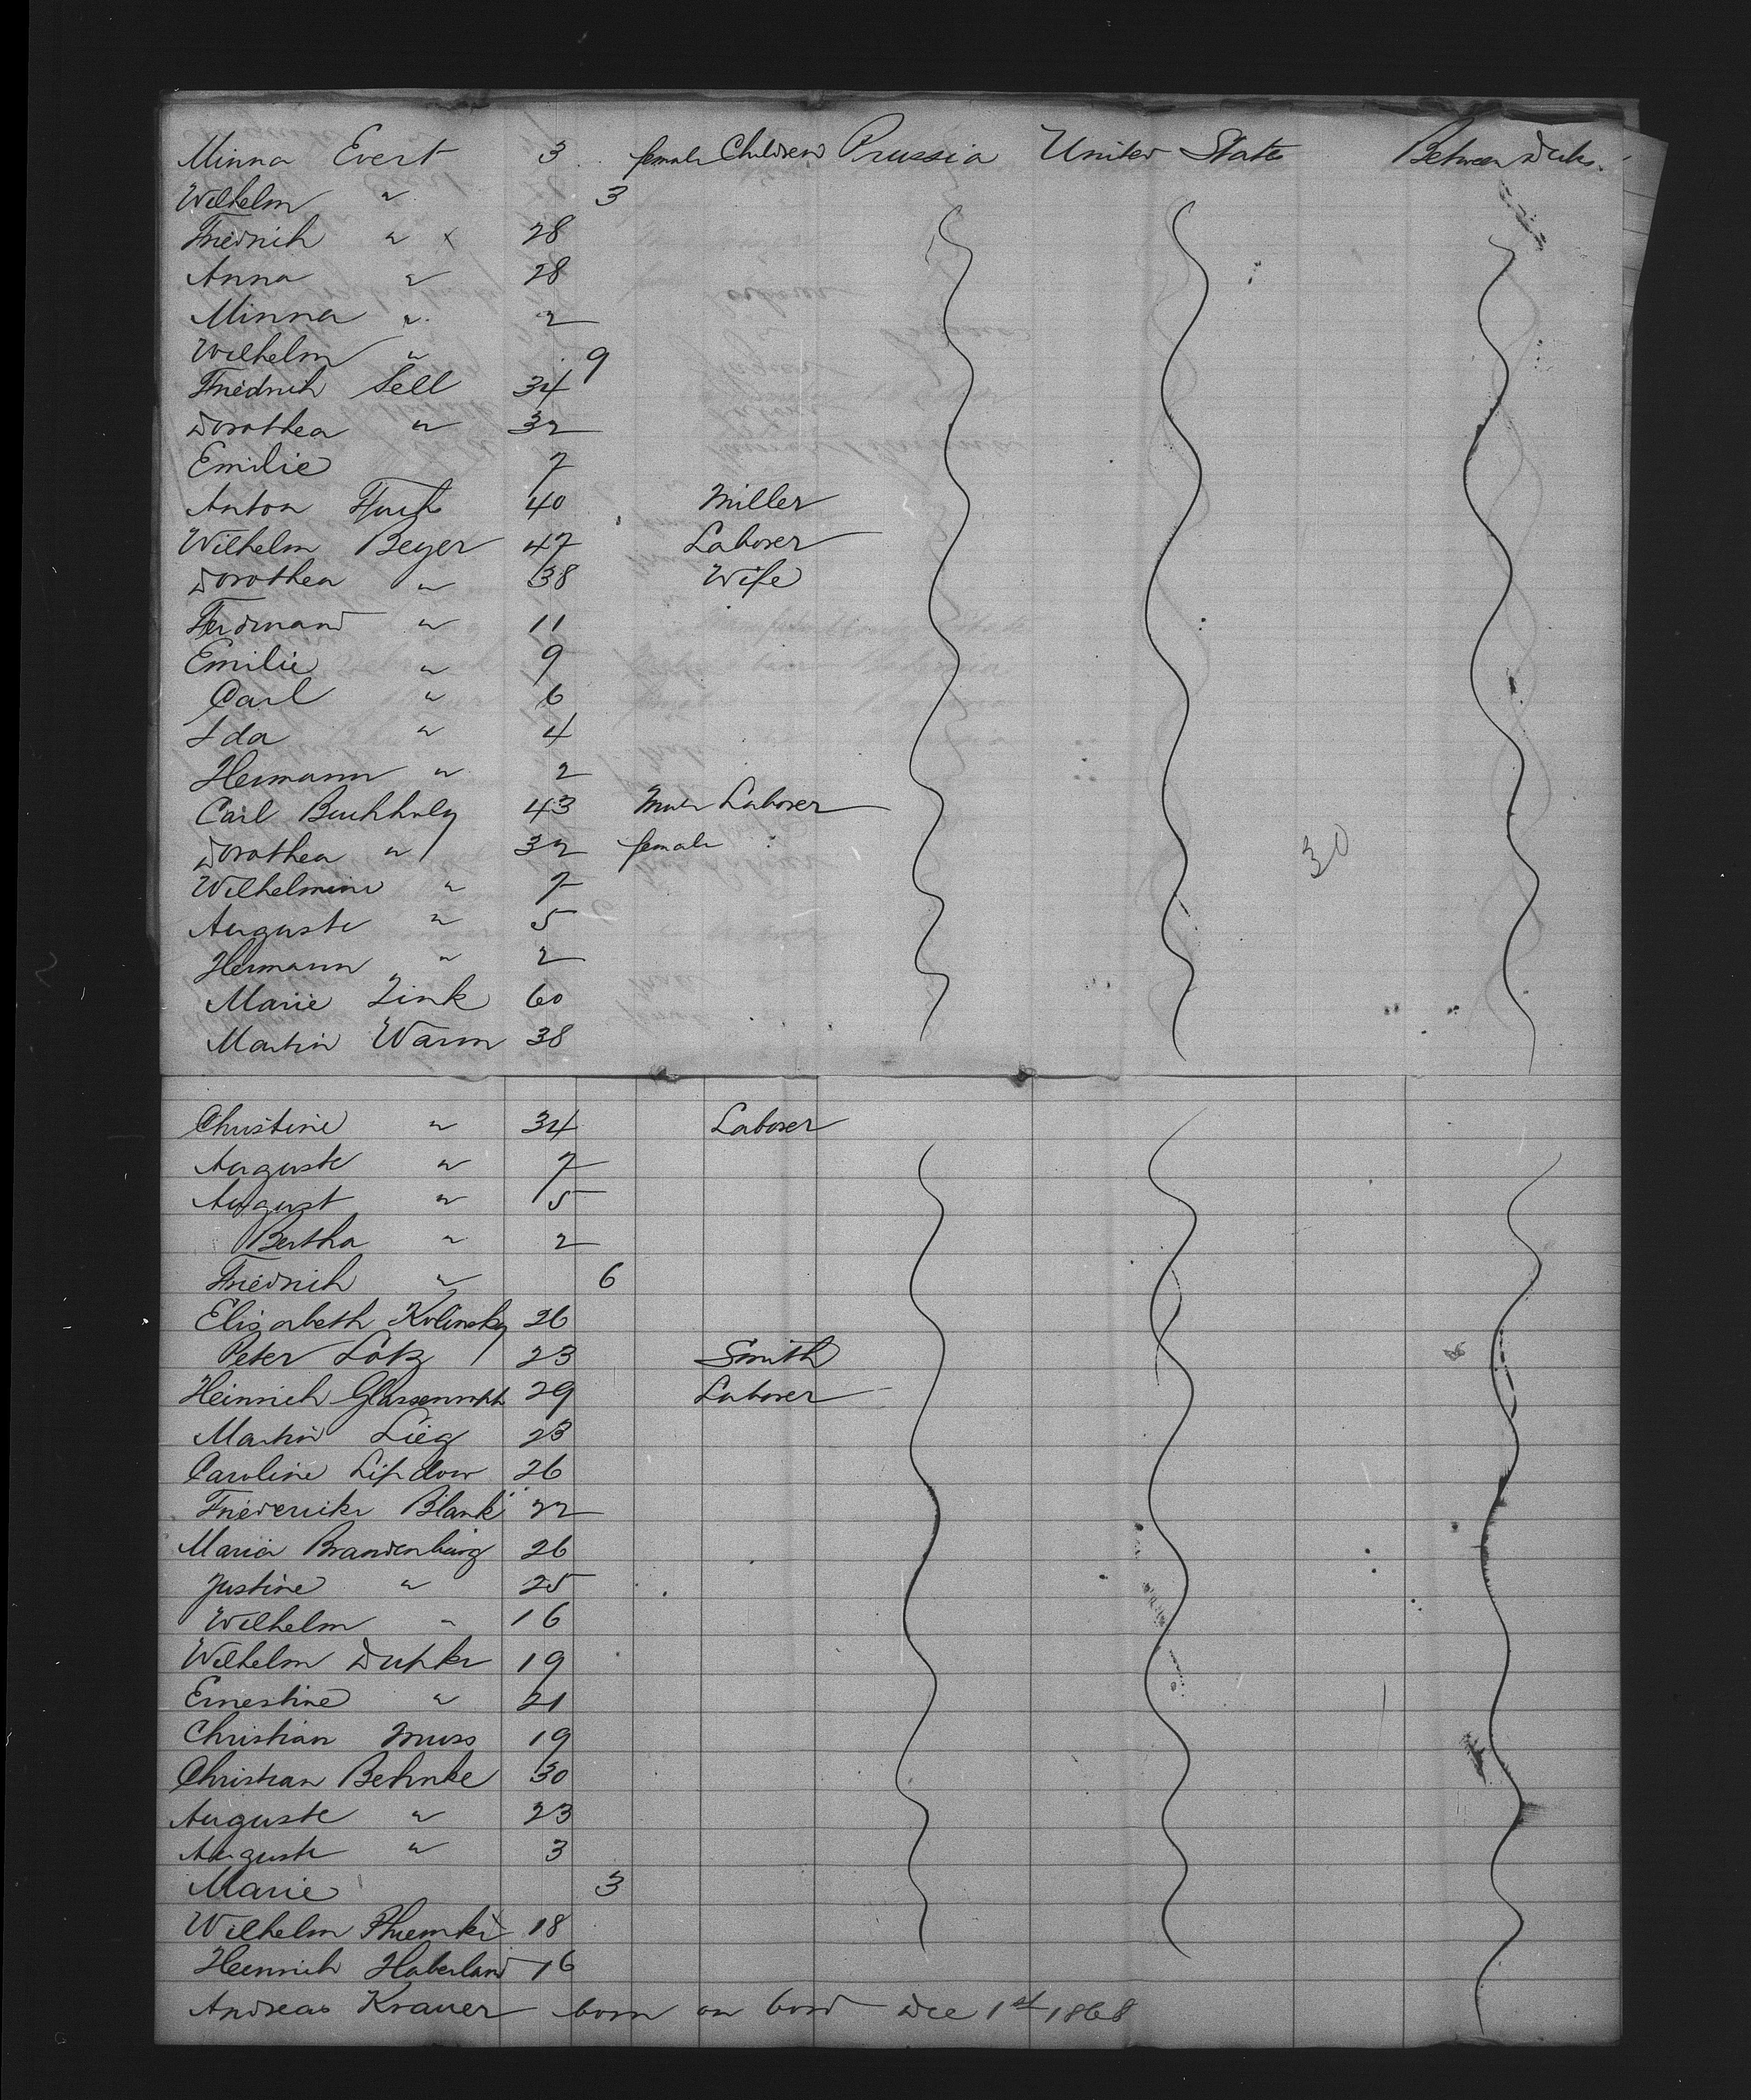 Minna Evert 3 female Children Prussia United State Between Decks.
Wilhelm " 3
Friedrich " x 28
Anna " 28
Minna " 2
Wilhelm " 9
Friedrich Sell 34
Dorothea " 32
Emilie 7
Anton 40 Miller
Wilhelm Beyer 47 Laborer
Dorothea " 38 Wife
Ferdinand " 11
Emilie " 9
Carl " 6
Ida " 4
Hermann " 2
Carl Buchholz 43 Male Laborer
Dorothea " 32 female "
30
Wilhelmine " 7
Auguste " 5
Hermann " 2
Marie Zink 60
Martin Warm 38
Christine " 34 Laborer
Auguste " 7
August " 5
Bertha " 2
Friedrich " 6
Elisabeth Kolinsky 26
Peter Lotz 23 Smith
Heinrich 29 Laborer
Martin Lieg 23
Caroline Lipdow 26
Friederike Blank 22
Maria Brandenburg 26
Justine " 25
Wilhelm " 16
Wilhelm 19
Ernestine " 21
Christian Muss 19
Christian Behnke 30
Auguste " 23
Auguste " 3
Marie 3
Wilhelm 18
Heinrich Haberland 16
Andreas Krauer born on bord Dec 1st 1868